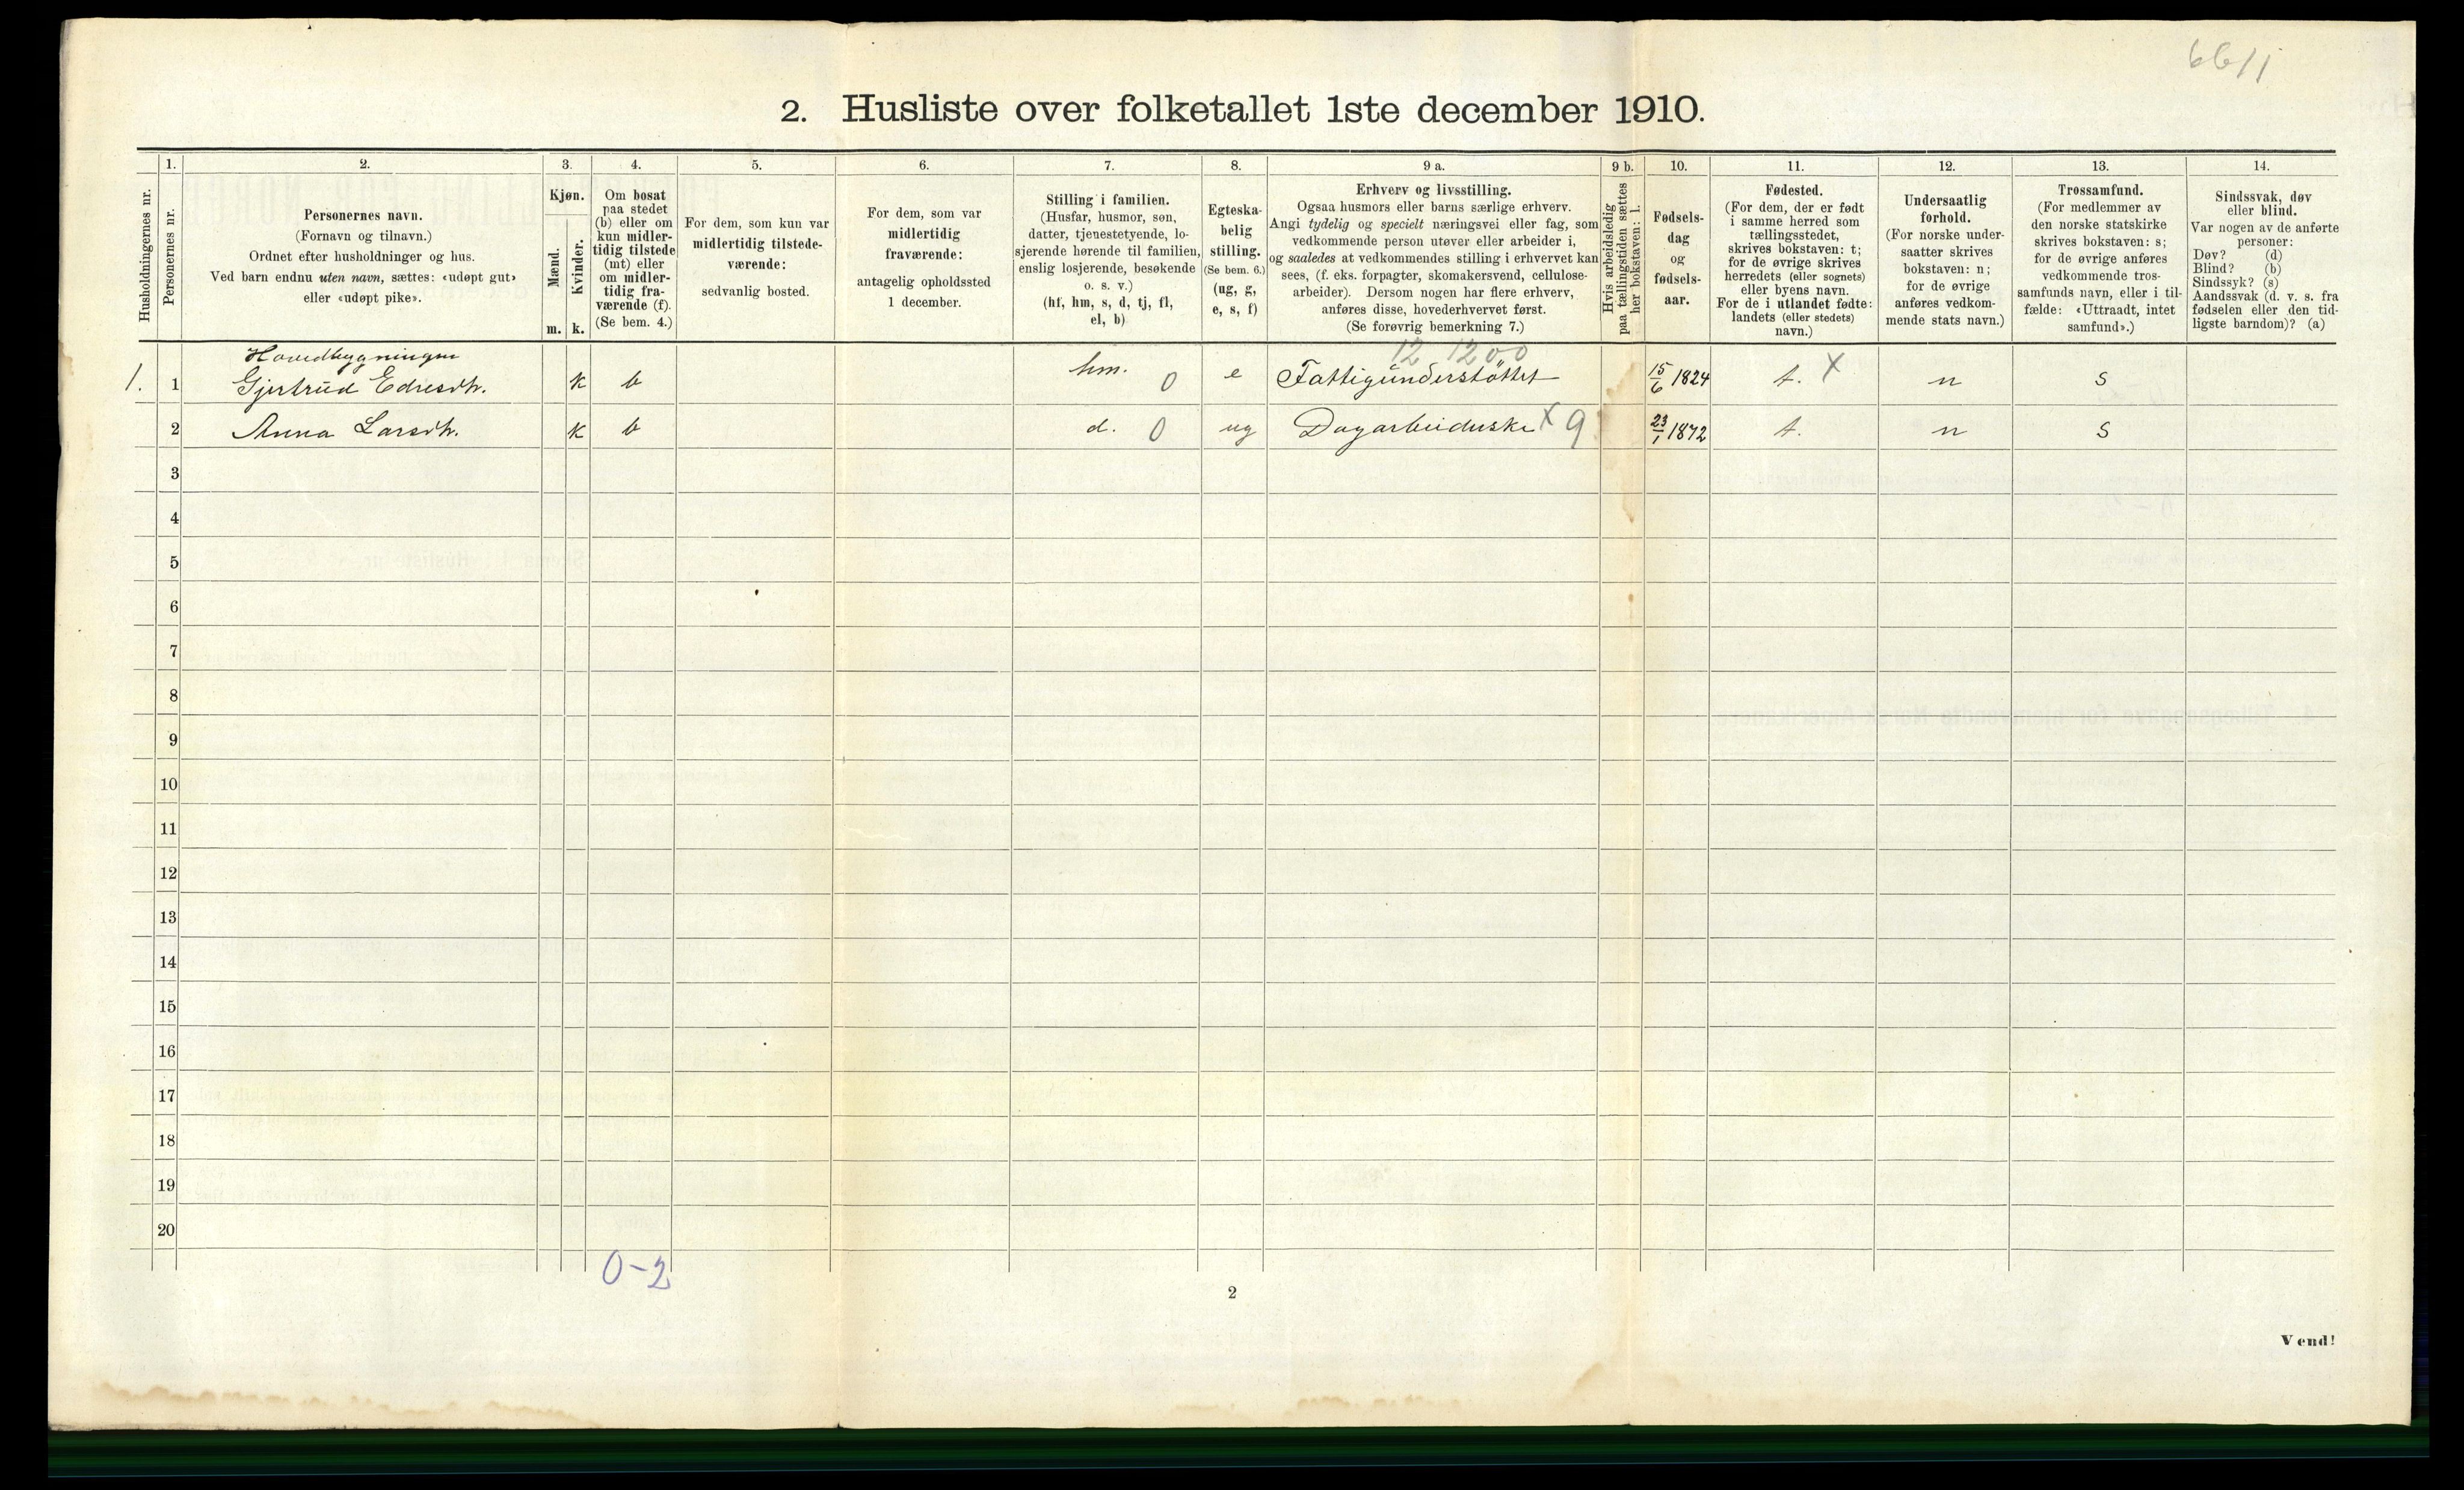 6611
2. Husliste over folketallet 1ste december 1910.
Husholdningernes nr.
1.
Personernes nr.
2.
Personernes navn.
(Fornavn og tilnavn.)
Ordnet efter husholdninger og hus.
Ved barn endnu uten navn, sættes: «udøpt gut»
eller «udøpt pike».
3.
Kjøn.
Mænd.
m.
Kvinder.
k.
4.
Om bosat
paa stedet
(b) eller om
kun midler-
tidig tilstede
(mt) eller
om midler-
tidig fra-
værende (f).
(Se bem. 4.)
5.
For dem, som kun var
midlertidig tilstede-
værende:
sedvanlig bosted.
6.
For dem, som var
midlertidig
fraværende:
antagelig opholdssted
1 december.
7.
Stilling i familien.
(Husfar, husmor, søn,
datter, tjenestetyende, lo-
sjerende hørende til familien,
enslig losjerende, besøkende
o. s. v.)
(hf, hm, s, d, tj, fl,
el, b)
8.
Egteska-
belig
stilling.
(Se bem. 6.)
(ug, g,
e, s, f)
9 a.
Erhverv og livsstilling.
Ogsaa husmors eller barns særlige erhverv.
Angi tydelig og specielt næringsvei eller fag, som
vedkommende person utøver eller arbeider i,
og saaledes at vedkommendes stilling i erhvervet kan
sees, (f. eks. forpagter, skomakersvend, cellulose-
arbeider). Dersom nogen har flere erhverv,
anføres disse, hovederhvervet først.
(Se forøvrig bemerkning 7.)
9 b.
Hvis arbeidsledig
paa tællingstiden sættes
her bokstaven: l.
10.
Fødsels-
dag
og
fødsels-
aar.
11.
Fødested.
(For dem, der er født
i samme herred som
tællingsstedet,
skrives bokstaven: t;
for de øvrige skrives
herredets (eller sognets)
eller byens navn.
For de i utlandet fødte:
landets (eller stedets)
navn.)
12.
Undersaatlig
forhold.
(For norske under-
saatter skrives
bokstaven: n;
for de øvrige
anføres vedkom-
mende stats navn.)
13.
Trossamfund.
(For medlemmer av
den norske statskirke
skrives bokstaven: s;
for de øvrige anføres
vedkommende tros-
samfunds navn, eller i til-
fælde: «Uttraadt, intet
samfund».)
14.
Sindssvak, døv
eller blind.
Var nogen av de anførte
personer:
Døv? (d)
Blind? (b)
Sindssyk? (s)
Aandssvak (d. v. s. fra
fødselen eller den tid-
ligste barndom)? (a)
Hovedbygningen 12 1200
1. 1 Gjertrud Edresdtr. k b hm. 0 e Fattigünderstøttet 15/6 1824 t. X n s
2 Anna Larsdtr. k b d. 0 ug Dagarbeiderske X 9 23/1 1872 t. n s
3
4
5
6
7
8
9
10
11
12
13
14
15
16
17
18
19
20
0-2
2
Vend!